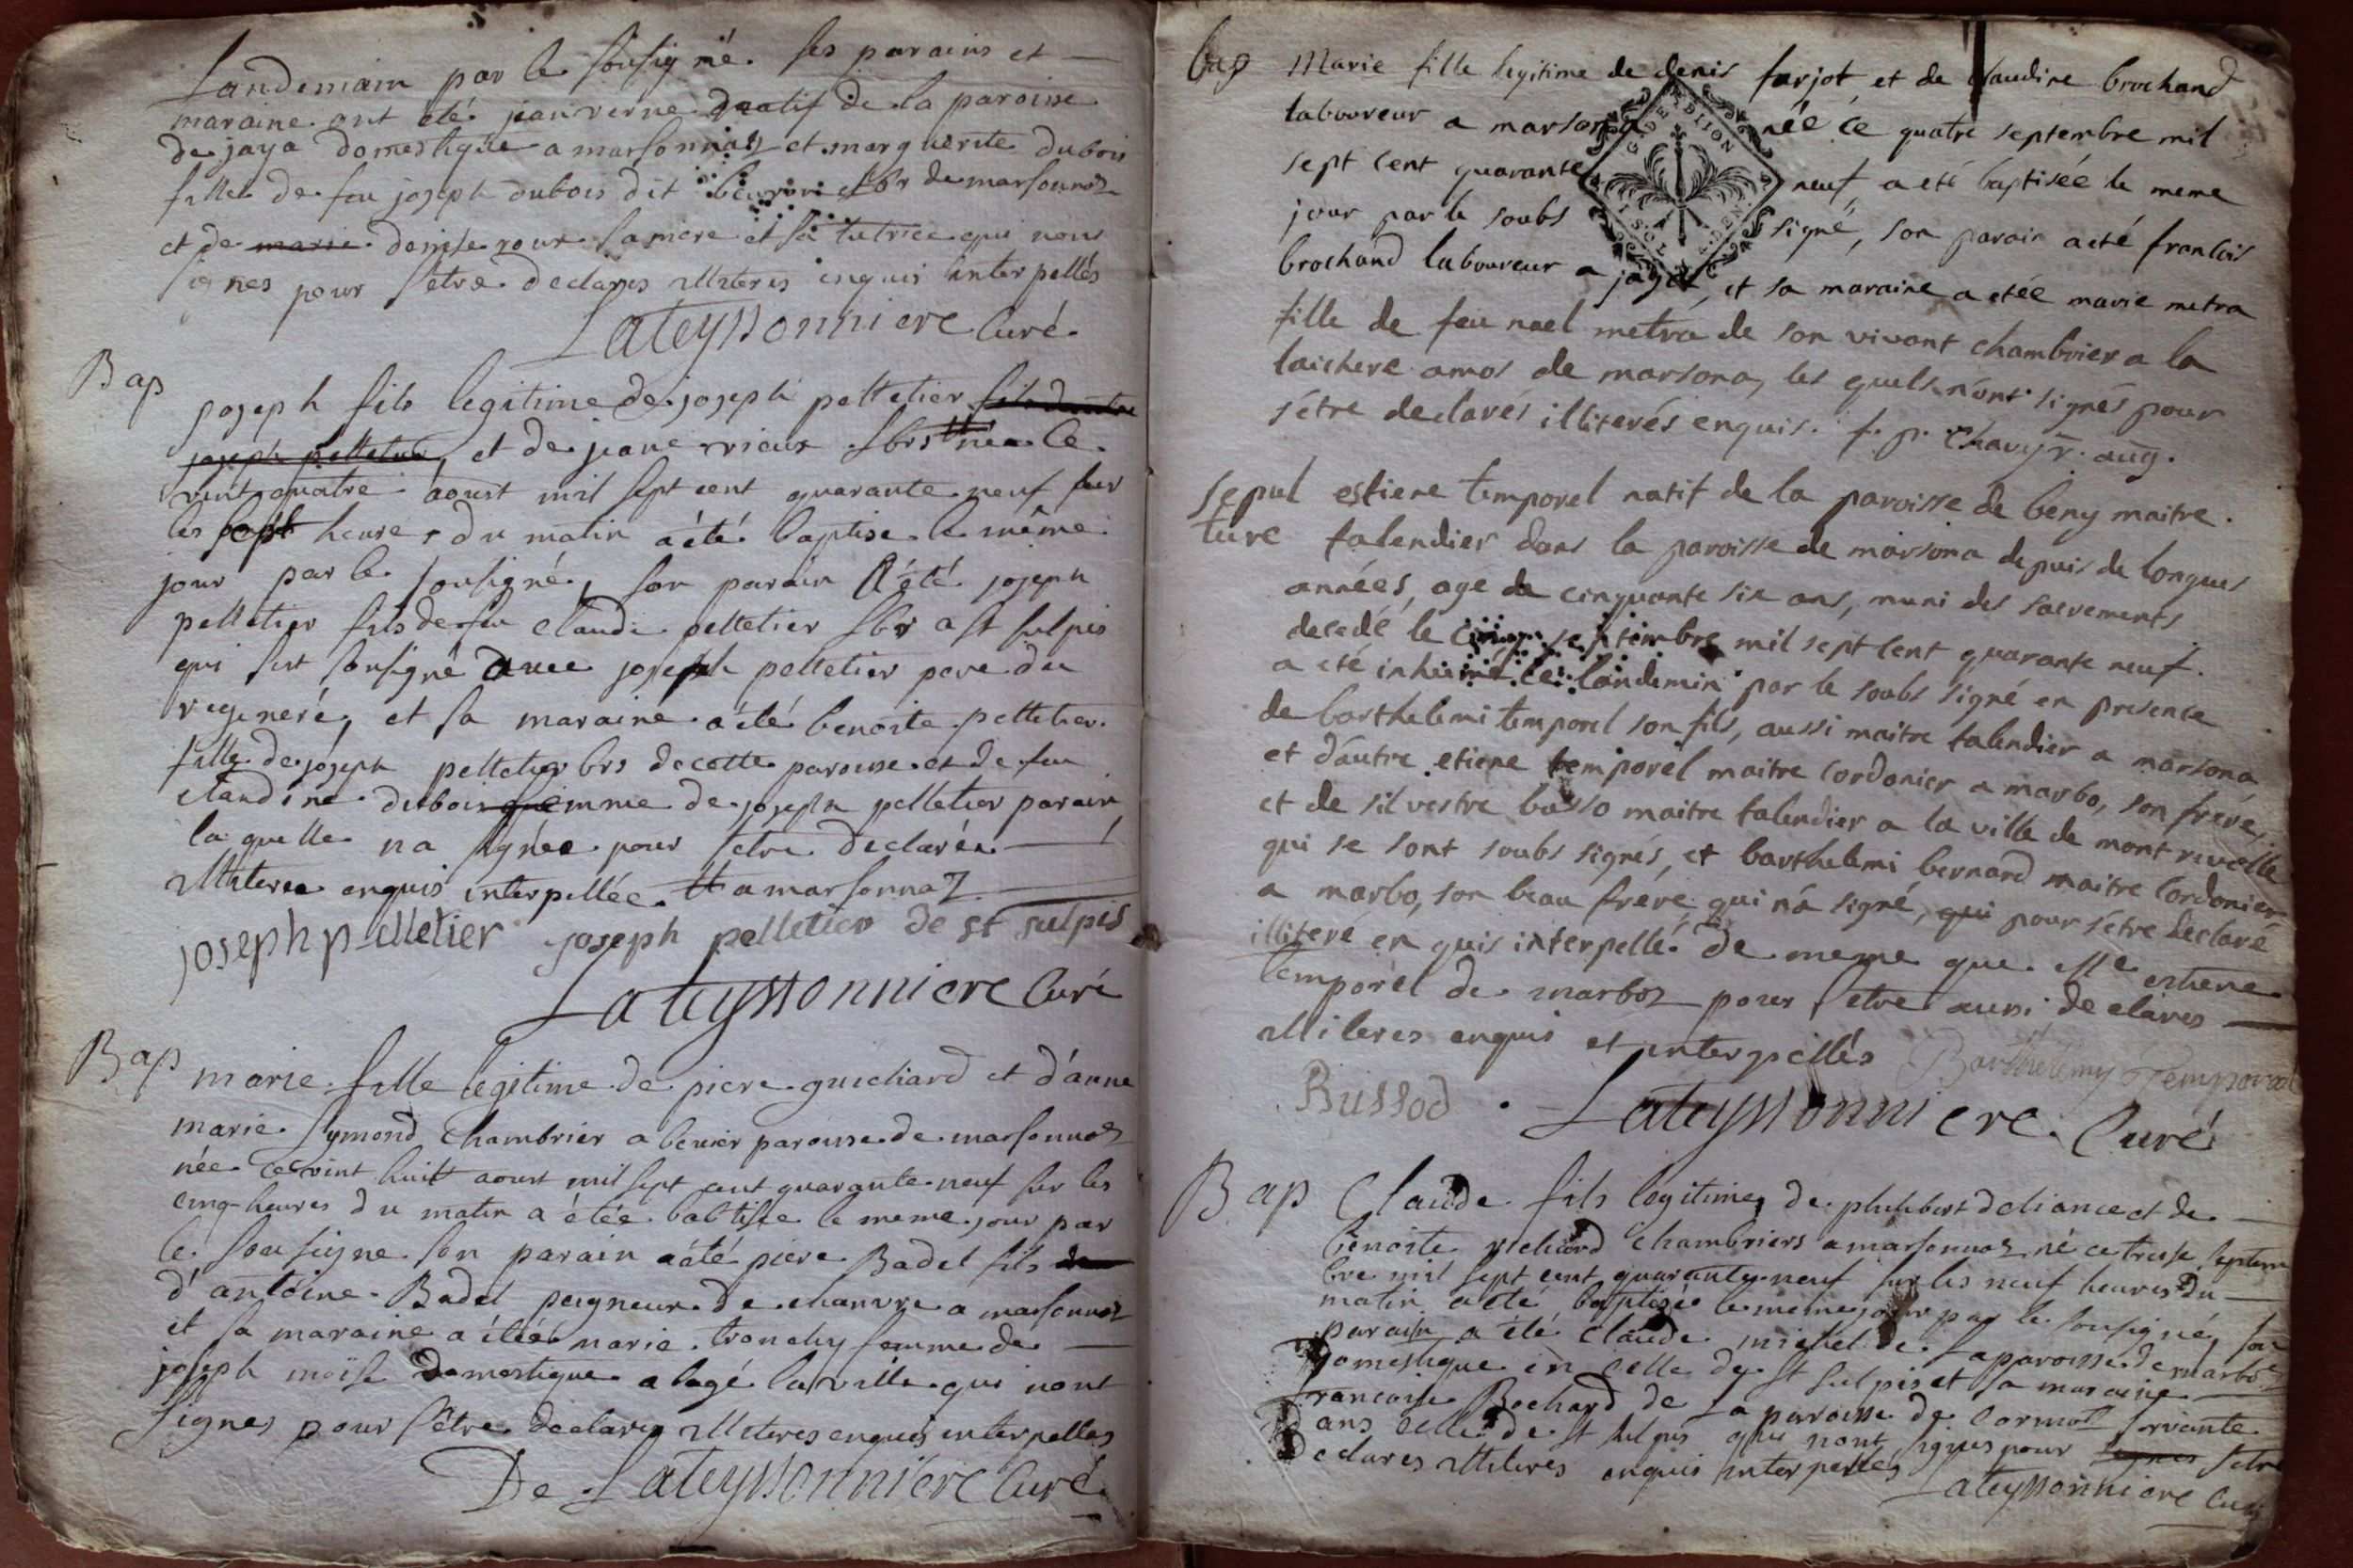 Landemain par le sousigné. ses parains et
maraine ont été jean verne natif de la paroisse
de jaya domestique a marsonnaz et marguerite dubois
fille de feu joseph dubois dit lbr de marsonnaz
et de marie denise roux sa mere et sa tutrice qui nont
signes pour setre declares illiteres enquis interpellés
Lateyssonniere Curé.
Bap
joseph fils legitime de joseph pelletier fils dautre
joseph pelletier, et de jeane vieux lbrs né le
vint quatre aoust mil sept cent quarante neuf sur
les sept heures du matin a été baptise le même
jour par le sousigné, son parain a été joseph
pelletier fils de feu claude pelletier lbr a st sulpis
qui sest sousigné avec joseph pelletier pere du
regeneré, et sa maraine a été benoite pelletier
fille de joseph pelletier lbrs de cette paroisse et de feu
claudine dubois femme de joseph pelletier parain
la quelle na signée pour setre declarée
illiteree enquis interpellée a marsonnaz
joseph pelletier joseph pelletier de st sulpis
Lateyssonniere Curé
Bap
marie fille legitime de piere guichard et d'anne
marie symond chambrier a bevier paroisse de marsonnaz
née ce vint huit aoust mil sept cent quarante neuf sur les
cinq heures du matin a étée babtisee le meme jour par
le sousigne son parain a été piere Badel fils de
d'antoine Badel peigneur de chanvre a marsonnaz
et sa maraine a étéé marie tronchy femme de
joseph moise domestique a lagé la ville qui nont
signes pour s'être declares illiteres enquis interpelles
De Lateyssonniere Curé
bap Marie fille legitime de denis farjot, et de claudine brochand
laboureur a marsona née ce quatre septembre mil
sept cent quarante neuf a eté baptisée le meme
jour par le soubs signé, son parain a eté francois
brochand laboureur a jaya, et sa maraine a etée marie metra
fille de feu noel metra de son vivant chambrier a la
laichere amos de marsona, les quels n'ont signés pour
s'étre declarés illiterés enquis. f. p. chavy r. aug.
Sepul estiene temporel natif de la paroisse de beny maitre
ture talendier dans la paroisse de marsona depuis de longues
années, age de cinquante six ans, muni des sacrements
decedé le cinq septembre mil sept cent quarante neuf.
a eté inhumé le landemin par le soubs signé en presence
de barthelemi temporel son fils, aussi maitre talendier a marsona
et d'autre etiene temporel maitre cordonier a marbo, son frere,
et de silvestre busso maitre talendier a la ville de montrevelle
qui se sont soubs signés, et barthelemi bernard maitre cordonier
a marbo, son beau frere qui n'a signé, qui pour s'étre declaré
illiteré enquis interpellé. de meme que Me estiene
temporel de marboz pour setre aussi declares
illiteres enquis et interpellés Barthelemy Temporal
Bussod. Lateyssonniere. Curé
Bap Claude fils legitime de philibert deliance et de
benoite richard chambriers a marsonnaz né ce treise septem
bre mil sept cent quarante neuf sur les neuf heures du
matin a été baptisée le meme jour par le sousigné, son
parain a été claude michel de la paroisse de marbo
domestique en celle de st sulpis et sa maraine
francoise Bochard de la paroisse de cormoz servante
dans celle de st sulpis qui nont signes pour signes setre
declares illiteres enquis interpelles
Lateyssonniere Curé